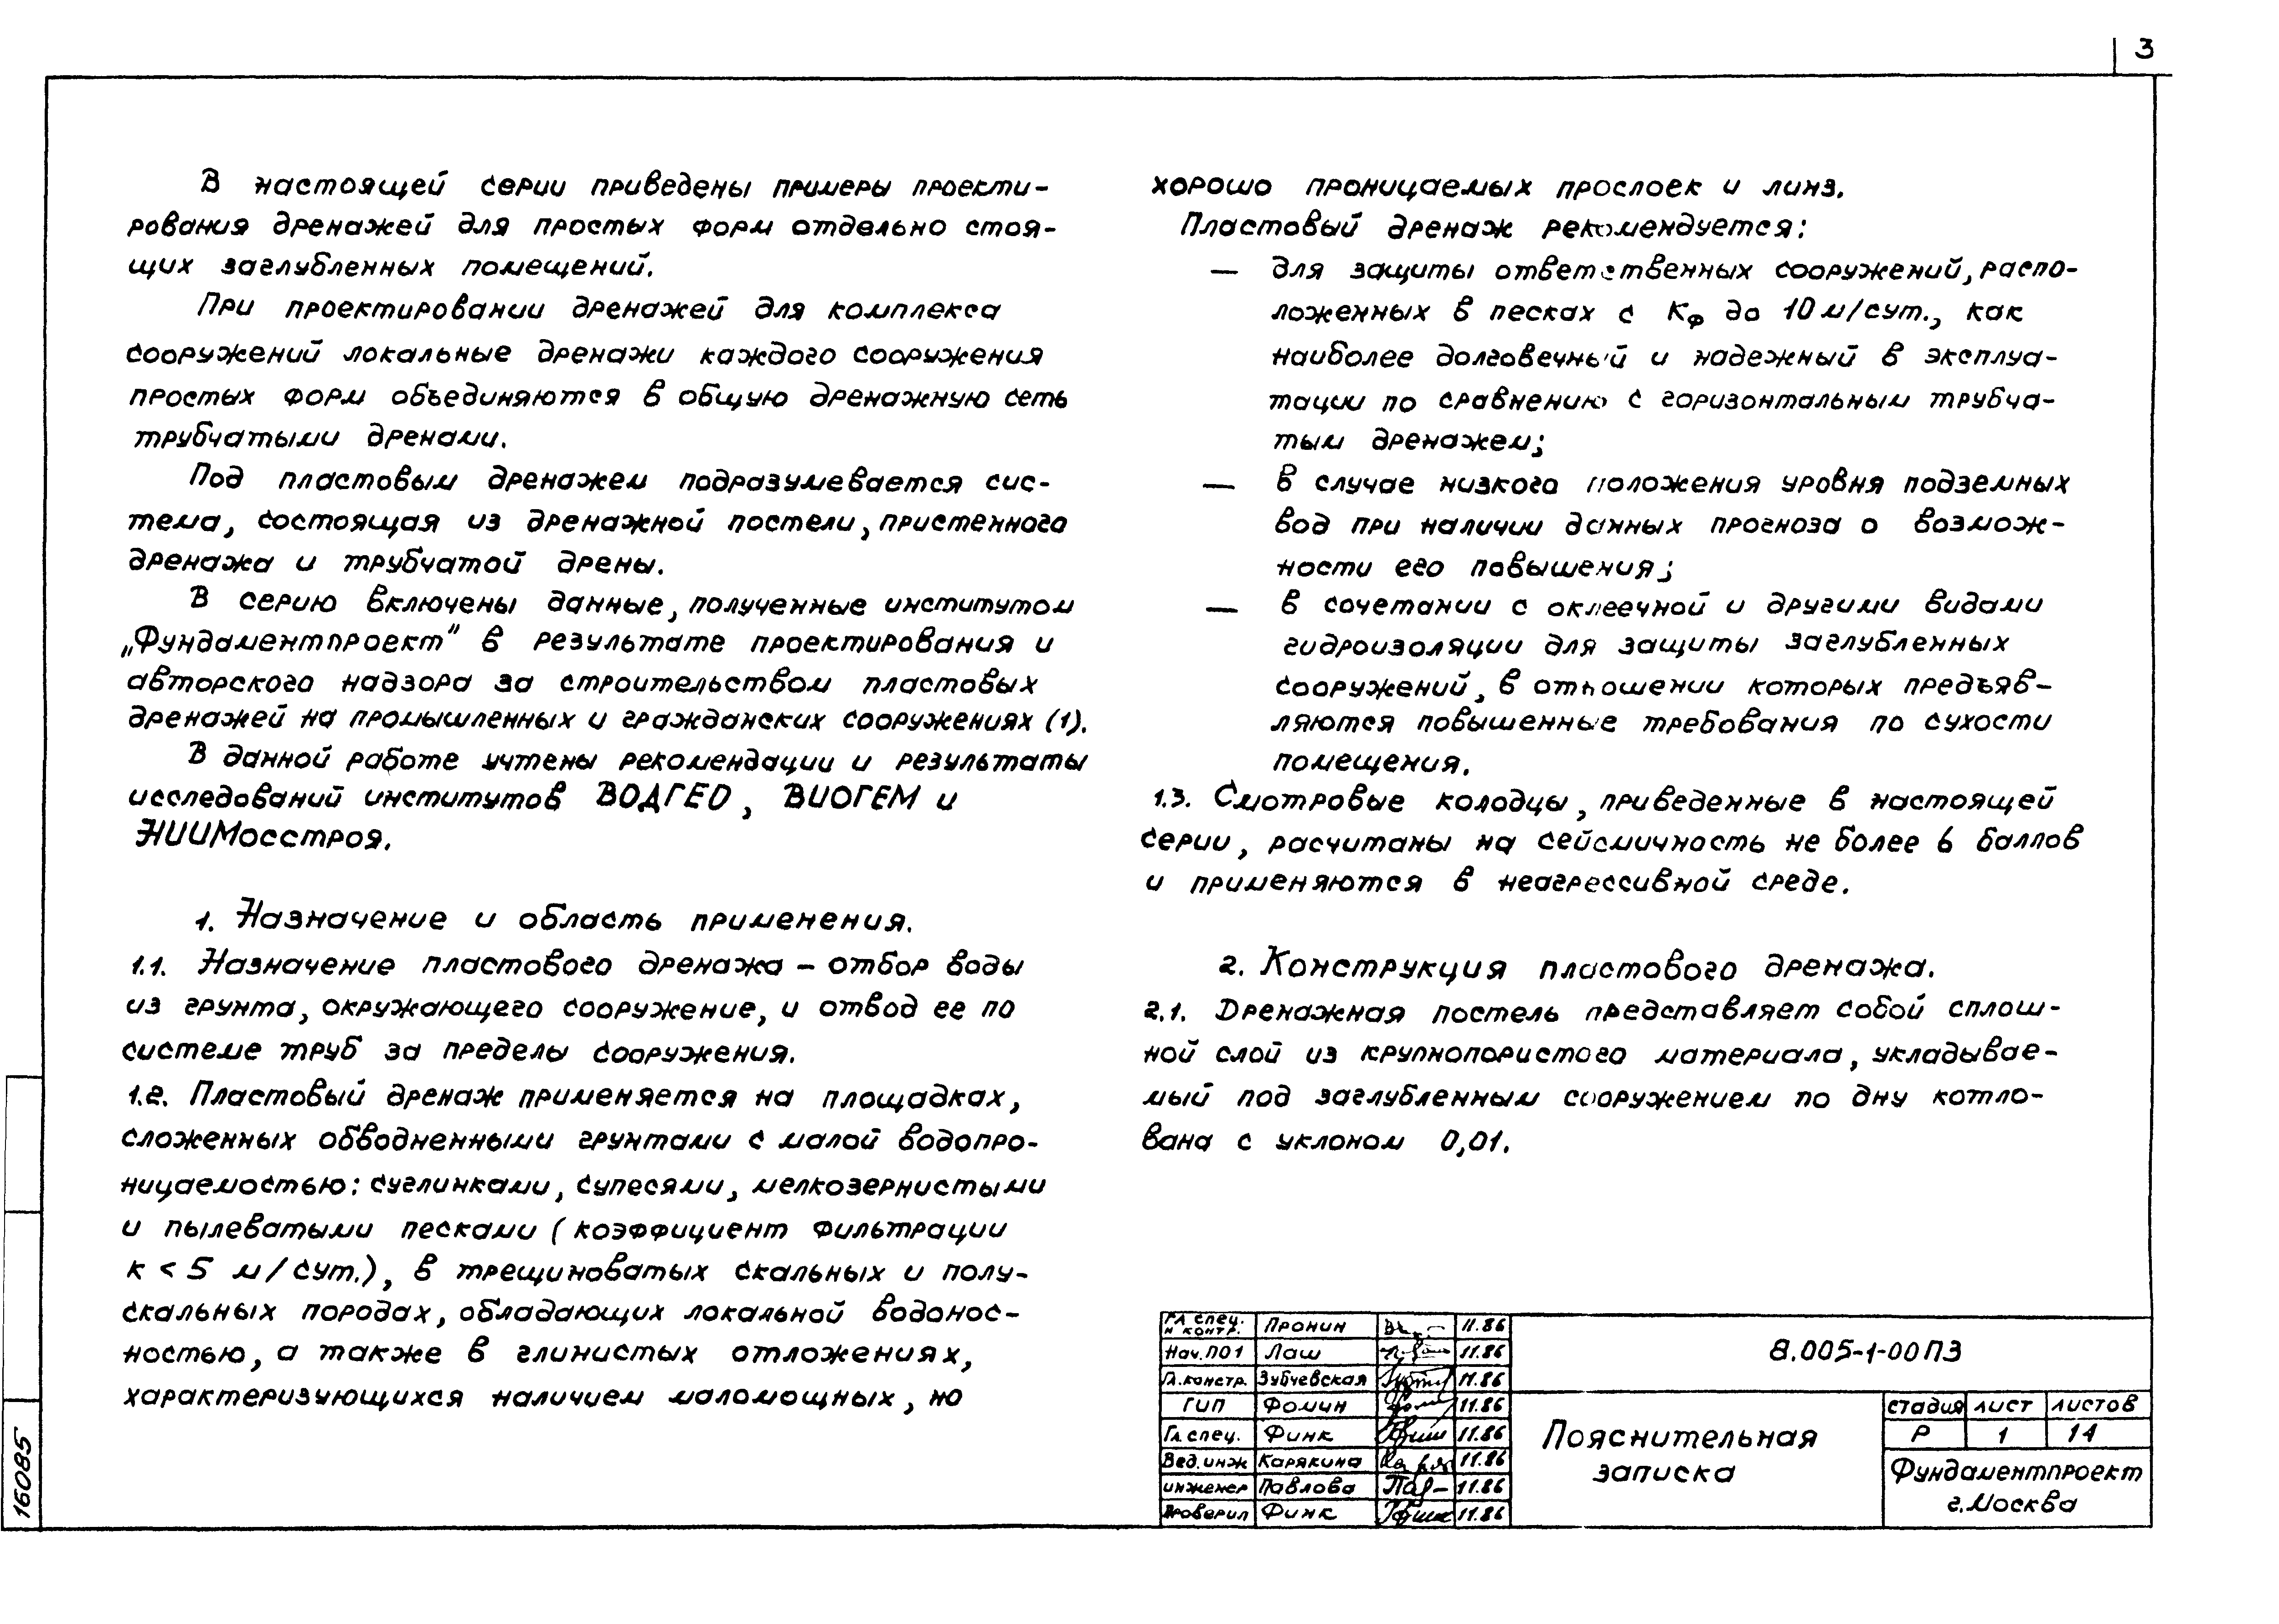 3
В настоящей серии приведены примеры проекти-
рования дренажей для простых форм отдельно стоя-
щих заглубленных помещений.
При проектировании дренажей для комплекса
сооружений локальные дренажи каждого сооружения
простых форм объединяются в общую дренажную сеть
трубчатыми дренами.
Под пластовым дренажем подразумевается сис-
тема, состоящая из дренажной постели, пристенного
дренажа и трубчатой дрены.
В серию включены данные, полученные институтом
„Фундаментпроект" в результате проектирования и
авторского надзора за строительством пластовых
дренажей на промышленных и гражданских сооружениях (1).
В данной работе учтены рекомендации и результаты
исследований институтов ВОДГЕО, ВИОГЕМ и
НИИМосстроя.
1. Назначение и область применения.
1.1. Назначение пластового дренажа – отбор воды
из грунта, окружающего сооружение, и отвод ее по
системе труб за пределы сооружения.
1.2. Пластовый дренаж применяется на площадках,
сложенных обводненными грунтами с малой водопро-
ницаемостью: суглинками, супесями, мелкозернистыми
и пылеватыми песками (коэффициент фильтрации
к < 5 м/сут.), в трещиноватых скальных и полу-
скальных породах, обладающих локальной водонос-
ностью, а также в глинистых отложениях,
характеризующихся наличием маломощных, но
хорошо проницаемых прослоек и линз.
Пластовый дренаж рекомендуется:
— для защиты ответственных сооружений, распо-
ложенных в песках с Кф до 10 м/сут., как
наиболее долговечный и надежный в эксплуа-
тации по сравнению с горизонтальным трубча-
тым дренажем;
— в случае низкого положения уровня подземных
вод при наличии данных прогноза о возмож-
ности его повышения;
— в сочетании с оклеечной и другими видами
гидроизоляции для защиты заглубленных
сооружений, в отношении которых предъяв-
ляются повышенные требования по сухости
помещения.
1.3. Смотровые колодцы, приведенные в настоящей
серии, расчитаны на сейсмичность не более 6 баллов
и применяются в неагрессивной среде.
2. Конструкция пластового дренажа.
2.1. Дренажная постель представляет собой сплош-
ной слой из крупнопористого материала, укладывае-
мый под заглубленным сооружением по дну котло-
вана с уклоном 0,01.
Гл спец. н контр. Пронин 11.86
Нач. ПО1 Лаш 11.86
Гл. констр. Зубчевская 11.86
ГИП Фомин 11.86
Гл спец. Финк 11.86
Вед. инж Карякина 11.86
инженер Павлова 11.86
Проверил Финк 11.86
8.005-1-00 ПЗ
Пояснительная
записка
стадия лист листов
Р 1 14
Фундаментпроект
г. Москва
16085